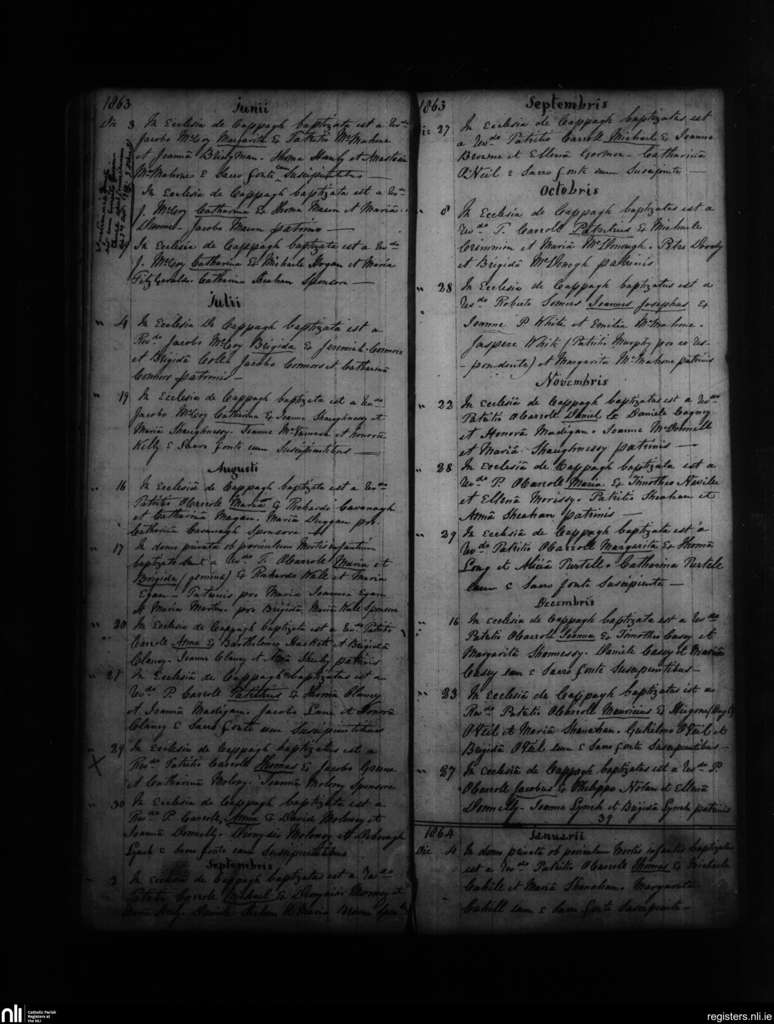 1863
Junii
Die 3 In Ecclesia de Cappagh baptizata est a Revdo
Jacobo McCoy Margarita Ex Patritio McMahone
et Joanna Bridgman. Thoma Hanly et Anastasia
McMahone e Sacro fonte Suscipientibus
In Ecclesia de Cappagh baptizata est a Revdo
J. McCoy Catharina Ex Thoma Mason et Maria
Jacobo Mason patrino
In Ecclesia de Cappagh baptizata est a Revdo
J. McCoy Catharina Ex Michaele Hogan et Maria
FitzGerald. Catharina Sheahan Sponsora
Julii
" 4 In Ecclesia de Cappagh baptizata est a
Revdo Jacobo McCoy Brigida Ex Jeremiah Connors
et Brigida Jacobo Connors et Catharina
Connors patrinis
" 19 In Ecclesia de Cappagh baptizata est a Revdo
Jacobo McCoy Catharina Ex Joanne Shaughnessy et
Maria Shaughnessy. Joanne et Honora
Kelly e Sacro fonte eam Suscipientibus
Augusti
" 16 In Ecclesia de Cappagh baptizata est a Revdo
Patritio OCarrole Maria Ex Richardo Cavanagh
et Catharina Magan. Maria Duggan pro
Catharina Cavanagh Sponsora
" 17 In domo privata ob periculum Mortis infantium
baptizatae sunt a Revdo P. OCarrole Maria et
Brigida (geminae) Ex Richardo Wall et Maria
Egan. Patrinis pro Maria Joanna Egan
et Maria pro Brigida Maria Wall Sponsora
" 20 In Ecclesia de Cappagh baptizata est a Revdo Patritio
Carrole Anna Ex Bartholomeo Hackett et Brigida
Clancy. Joanne Clancy et patrinis
" 27 In Ecclesia de Cappagh baptizatus est a
Revdo P. Carrole Patritius Ex Thoma Clancy
et Joanna Madigan. Jacobo et Honora
Clancy e Sacro fonte eum Suscipientibus
" 29 In Ecclesia de Cappagh baptizatus est a
Revdo Patritio Carrole Thomas Ex Jacobo
et Catharina Molony. Joanna Molony Sponsora
" 30 In Ecclesia de Cappagh baptizata est a
Revdo P. Carrole, Anna Ex David Molony et
Joanna Donnelly. Dionysio Molony et Deboragh
Lynch e Sacro fonte eam Suscipientibus
Septembris
" 3 In ecclesia de Cappagh baptizatus est a Revdo
Patritio Carrole Michael Ex Dionysio et
et Maria Browne
1863
Septembris
Die 27 In ecclesia de Cappagh baptizatus est
a Revdo Patritio Carroll Michael Ex Joanne
Browne et Ellena Gorman. Catharina
ONeil e Sacro fonte Suscipiente
Octobris
" 8 In Ecclesia de Cappagh baptizatus est a
Revdo P. Carroll Patritius Ex Michaele
Crimmin et Maria McDonough. Petro
et Brigida McDonough patrinis
" 28 In Ecclesia de Cappagh baptizatus est a
Revdo Roberto Joannes Josephus Ex
Joanne P White et Emilia McMahone.
Jaspero White (Patritio Murphy pro eo res-
-pondente) et Margarita McMahone patrinis
Novembris
" 22 In ecclesia de Cappagh baptizatus est a Revdo
Patritio OCarroll Daniel Ex Daniele
et Honora Madigan. Joanne McDonnell
et Maria Shaughnessy patrinis
" 28 In Ecclesia de Cappagh baptizata est a
Revdo P. OCarroll Maria Ex Timotheo
et Ellena Morrissy. Patritio Sheahan et
Anna Sheahan patrinis
" 29 In Ecclesia de Cappagh baptizata est a
Revdo Patritio OCarroll Margarita Ex Thoma
Long et Alicia Purtell. Catharina Purtell
eam e Sacro fonte Suscipiente
Decembris
" 16 In ecclesia de Cappagh baptizata est a Revdo
Patritio OCarroll Joanna Ex Timotheo Casey et
Margarita Hennessy. Daniele Casey et Maria
Casey eam e Sacro fonte Suscipientibus
" 23 In ecclesia de Cappagh baptizatus est a
Revdo Patritio OCarroll Mauricius Ex Hugone
ONeil et Maria Shanahan. Gulielmo ONeil et
Brigida ONeil eum e Sacro fonte Suscipientibus
" 27 In Ecclesia de Cappagh baptizatus est a Revdo P.
OCarroll Jacobus Ex Philippo Nolan et Ellena
Donnelly. Joanne Lynch et Brigida Lynch patrinis
39
1864
Januarii
Die 4 In domo privata ob periculum Mortis infantis baptizatus
est a Revdo Patritio OCarroll Thomas Ex Michaele
Cahill et Maria Shanahan. Margarita
Cahill eum e Sacro fonte Suscipiente
nli
Catholic Parish
Registers at
the NLI
registers.nli.ie